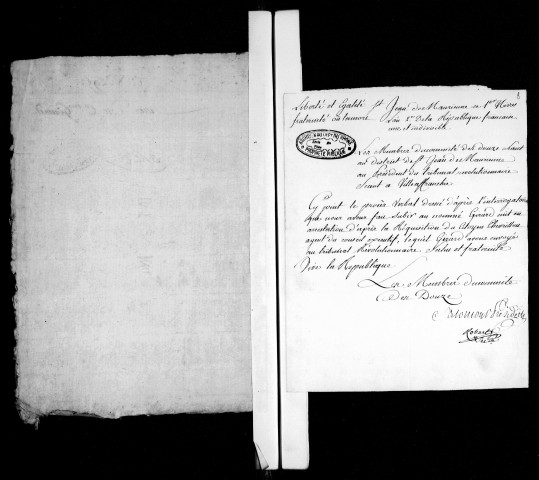 Liberté et Egalité
fraternité ou la mort
St Jean de Maurienne le 1er Nivos
L'an 2e De la République française
une et indivisible
Les Membres du comité des douze séant
au district de St Jean de Maurienne
au Président du tribunal révolutionnaire
séant a Villefranche
Cy joint le procès verbal dressé d'après l'interrogatoire
que nous avons fait subir au nommé Girard mis en
arrestation d'après la Réquisition du Citoyen
agent du conseil executif, lequel Girard avons envoyé
au tribunal Révolutionnaire Salus et fraternité
Vive la République
Les Membres du comité
des Douze
Président